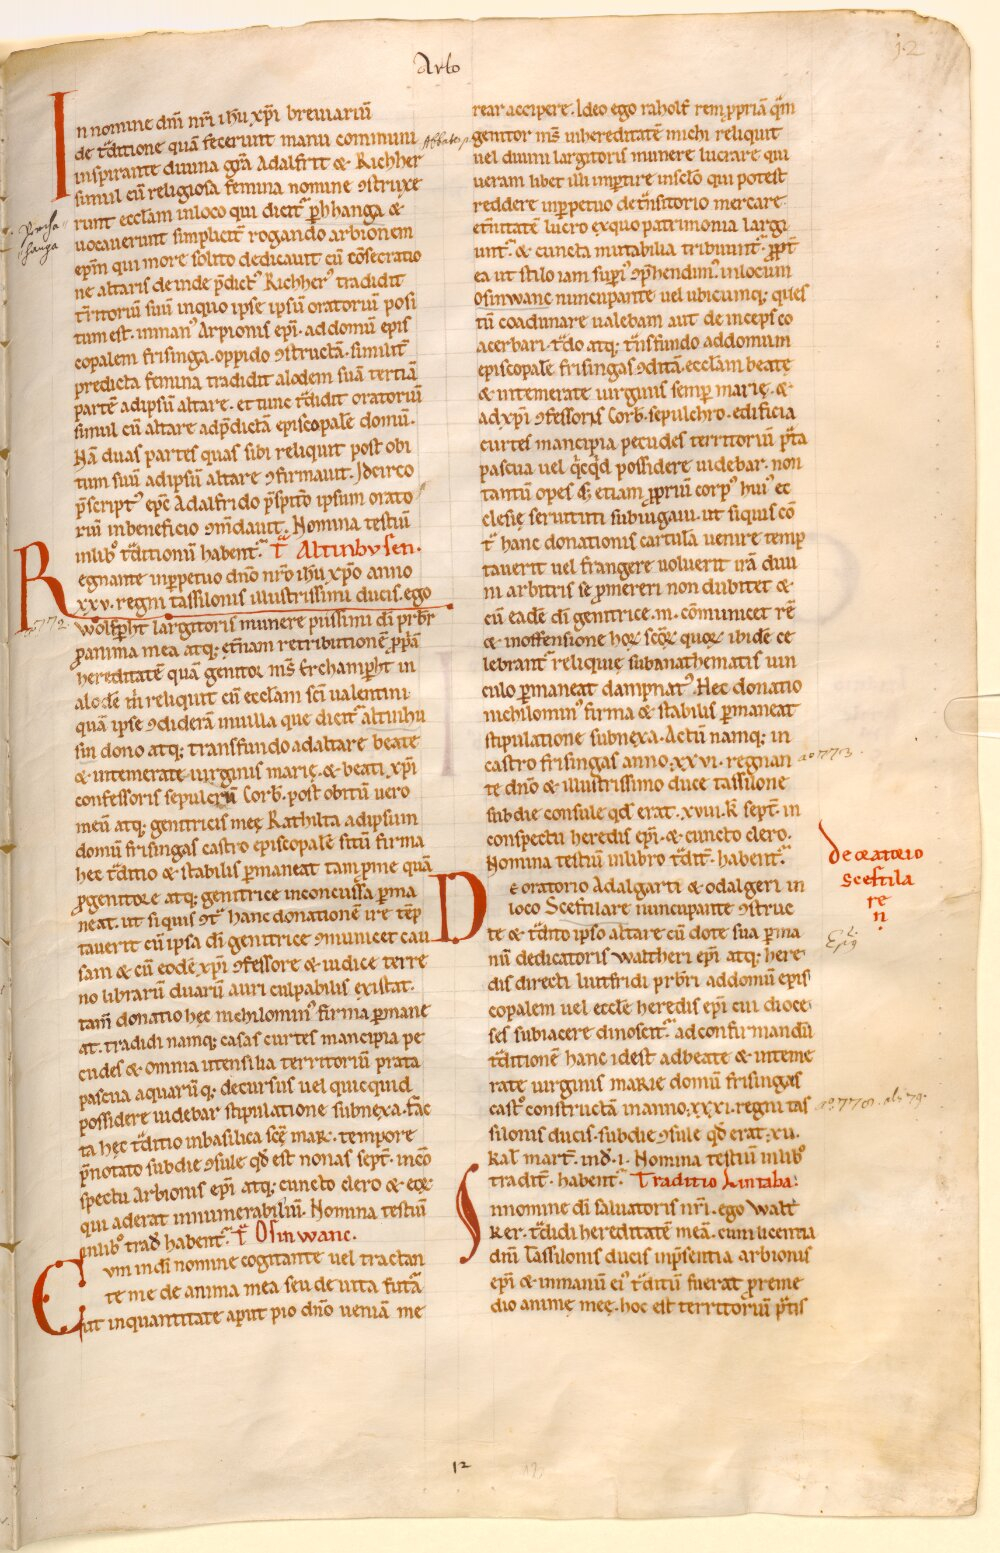 Arbo
12
In nomine dn̄i nr̄i ih̄u xp̄i breuiariū
de t͛ditione quā fecerunt manu communi
inspirante diuina gr̄a Adalfrit & Richher
simul cū religiosa femina nomine ꝯstruxe
runt eccl̄am inloco qui dicit᷑ p̄hhanga &
uocauerunt simplicit̄ rogando arbionem
ep̄m qui more solito dedicauit cū cōsecratio
ne altaris deinde p̄dict᷒ Richher᷒ tradidit
t̄ritoriū suū inquo ipse ipsū oratoriū posi
tum est. inman᷒ Arpionis ep̄i. addomū epis
copalem frisinga. oppido ꝯstructā. similit̄
predicta femina tradidit alodem suā tertiā
partē adipsū altare. et tunc t͛didit oratoriū
simul cū altare adp̄dictā episcopalē domū.
Nā duas partes quas sibi reliquit post obi
tum suū adipsū altare ꝯfirmauit. Idcirco
p̄script᷒ ep̄c Adalfrido p̄sp̄ito ipsum orato
riū inbeneficio ꝯm̄dauit. Nomina testiū
inlib᷒ t͛ditionū habent᷑. T͛ Altinhusen.
Regnante inp̱petuo dn̄o nr̄o ih̄u xp̄o anno
xxv. regni tassilonis illustrissimi ducis. ego
wolfp̱ht largitoris munere piissimi d̄i pr̄br̄
ꝓanima mea atq; et̄nam retributionē ꝓp̄ā
hereditatē quā genitor ms̄ Erchamp̱ht in
alode m̄ reliquit cū eccl̄am sc̄i ualentini
quā ipse ꝯdiderā inuilla que dicit᷑ altinhu
sin dono atq; transfundo adaltare beate
& intemerate uirginis marię. & beati xp̄i
confessoris sepulcrū Corb. post obitū uero
meū atq; genitricis meę Rathilta adipsum
domū frisingas castro episcopalē sitū firma
hec t͛ditio & stabilis p̱maneat tam p̱me quā
ꝓgenitore atq; genitrice inconcussa p̱ma
neat. ut siquis ꝯt᷑ hanc donationē ire tēp
tauerit cū ipsa d̄i genitrice ꝯmunicet cau
sam & cū eodē xp̄i ꝯfessore & iudice terre
no librarū duarū auri culpabilis existat.
tam̄ donatio hęc nichilomin᷒ firma p̱mane
at. tradidi namq; casas curtes mancipia pe
cudes & omnia utensilia territoriū prata
pascua aquarūq; decursus uel quicquid
possidere uidebar stipulatione subnexa. fac̄
ta hęc t͛ditio inbasilica sc̄ę mar̄. tempore
p̄notato subdie ꝯsule qd̄ est nonas sept̄. incō
spectu Arbionis ep̄i atq; cuncto clero & eoꝝ
qui aderat innumerabiliū. Nomina testiū
inlib᷒ trad̄ habent᷑. T͛ Osinwanc.
Cum ind̄i nomine cogitante uel tractan
te me de anima mea seu de uita futā
ut inquantitate aput pio dn̄o ueniā me
rear accipere. Ideo ego raholf rem ꝓpriā qm̄
genitor ms̄ inhereditatē michi reliquit
uel diuini largitoris munere lucrare qui
ueram libet illi imp̱tire insc̄lo qui potest
reddere inp̱petuo det᷑nsitorio mercare
et̄nitatē lucro exquo patrimonia largi
unt᷑. & cuncta mutabilia tribuunt᷑. ꝓpt̄
ea ut stilo iam sup̱i᷒ ꝯp̄hendim᷒ inlocum
osinwanc nuncupante uel ubicumq; ques
tū coadunare ualebam aut deinceps co
acerbari. t͛do atq; t͛nsfundo addomum
episcopalē frisingas ꝯditā. eccl̄am beatę
& intemerate uirginis semp̱ marię. &
adxp̄i ꝯfessoris Corb. sepulchro. edificia
curtes mancipia pecudes territoriū p̄ta
pascua uel q̇cq̇d possidere uidebar. non
tantū opes s; etiam ꝓpriū corp᷒ hui᷒ ec
clesię seruituti subiugaui. ut siquis cō
t᷑ hanc donationis cartulā uenire temp
tauerit uel frangere uoluerit irā diui
ni arbitris se ꝓmereri non dubitet &
cū eadē d̄i genitrice .m. cōmunicet rē
& inoffensione hoꝝ sc̄oꝝ quoꝝ ibidē ce
lebrant᷑ reliquię subanathematis uin
culo p̱maneat dampnat᷒. Hec donatio
nichilomin᷒ firma & stabilis p̱maneat
stipulatione subnexa. Actū namq; in
castro frisingas anno. xxvi. regnan
te dn̄o & illustrissimo duce tassilone
subdie consule qd̄ erat. xviii. k̄ sept̄. in
conspectu heredis ep̄i. & cuncto clero.
Nomina testiū inlibro t͛dit̄. habent᷑.
De oratorio Adalgarti & odalgeri in
loco Sceftilare nuncupante ꝯstruc
te & t͛dito ipso altare cū dote sua p̱ma
nū dedicatoris waltheri ep̄i atq; here
dis directi liutfridi pr̄br̄i addomū epis
copalem uel eccl̄e heredis ep̄i cui dioce
ses subiacere dinoscit᷑. adconfirmandū
t͛ditionē hanc idest adbeate & inteme
rate uirginis maRIE domū frisingas
cast᷒ constructā inanno. xxxi. regni tas
silonis ducis. subdie ꝯsule qd̄ erat. xii.
kal̄ mart̄. ind̄. i. Nomina testiū inlib᷒
tradit̄. habent᷑. Traditio Lintaha.
Innomine d̄i saluatoris nr̄i. ego walt
ker. t͛didi hereditatē meā. cum licentia
dn̄i Tassilonis ducis inp̄sentia arbionis
ep̄i & inmanū ei᷒ t͛ditū fuerat ꝓreme
dio animę meę. hoc est territoriū p̄tis
a° 772.
a° 773.
De oratorio
Sceftila
re
n.
a° 778. al: 79.
12